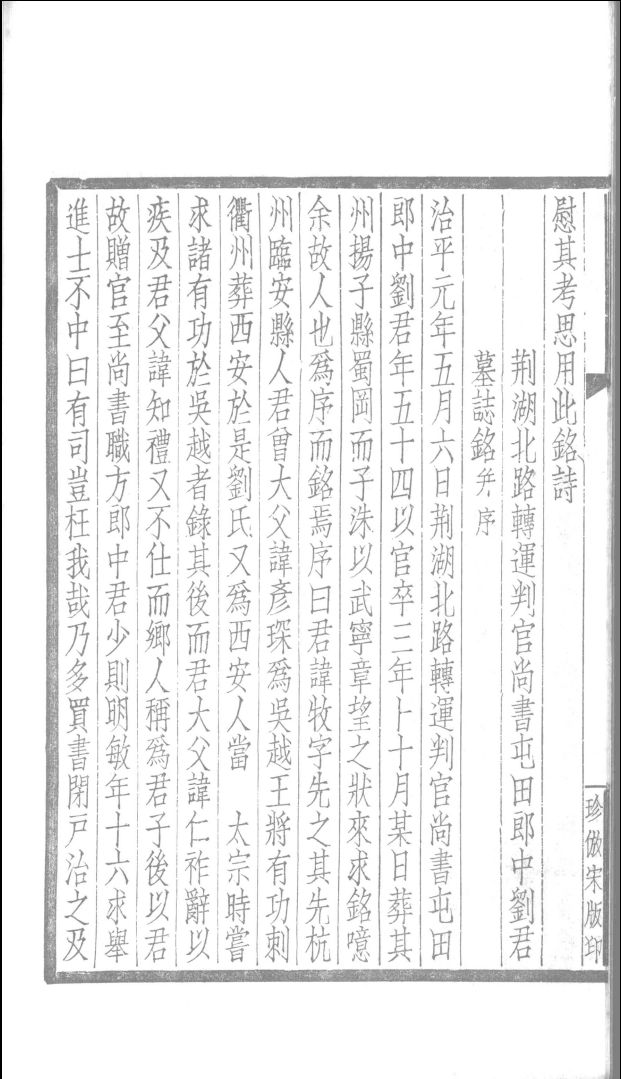 慰其考思用此銘詩
荆湖北路轉運判官尚書屯田郎中劉君
墓誌銘并序
治平元年五月六日荆湖北路轉運判官尚書屯田
郎中劉君年五十四以官卒三年卜十月某日葬真
州揚子縣蜀岡而子洙以武寧章望之狀來求銘噫
余故人也爲序而銘焉序曰君諱牧字先之其先杭
州臨安縣人君曾大父諱彥琛爲吳越王將有功刺
衢州葬西安於是劉氏又爲西安人當　太宗時嘗
求諸有功於吳越者錄其後而君大父諱仁祚辭以
疾及君父諱知禮又不仕而鄉人稱爲君子後以君
故贈官至尚書職方郎中君少則明敏年十六求舉
進士不中曰有司豈枉我哉乃多買書閉戶治之及
珍倣宋版印